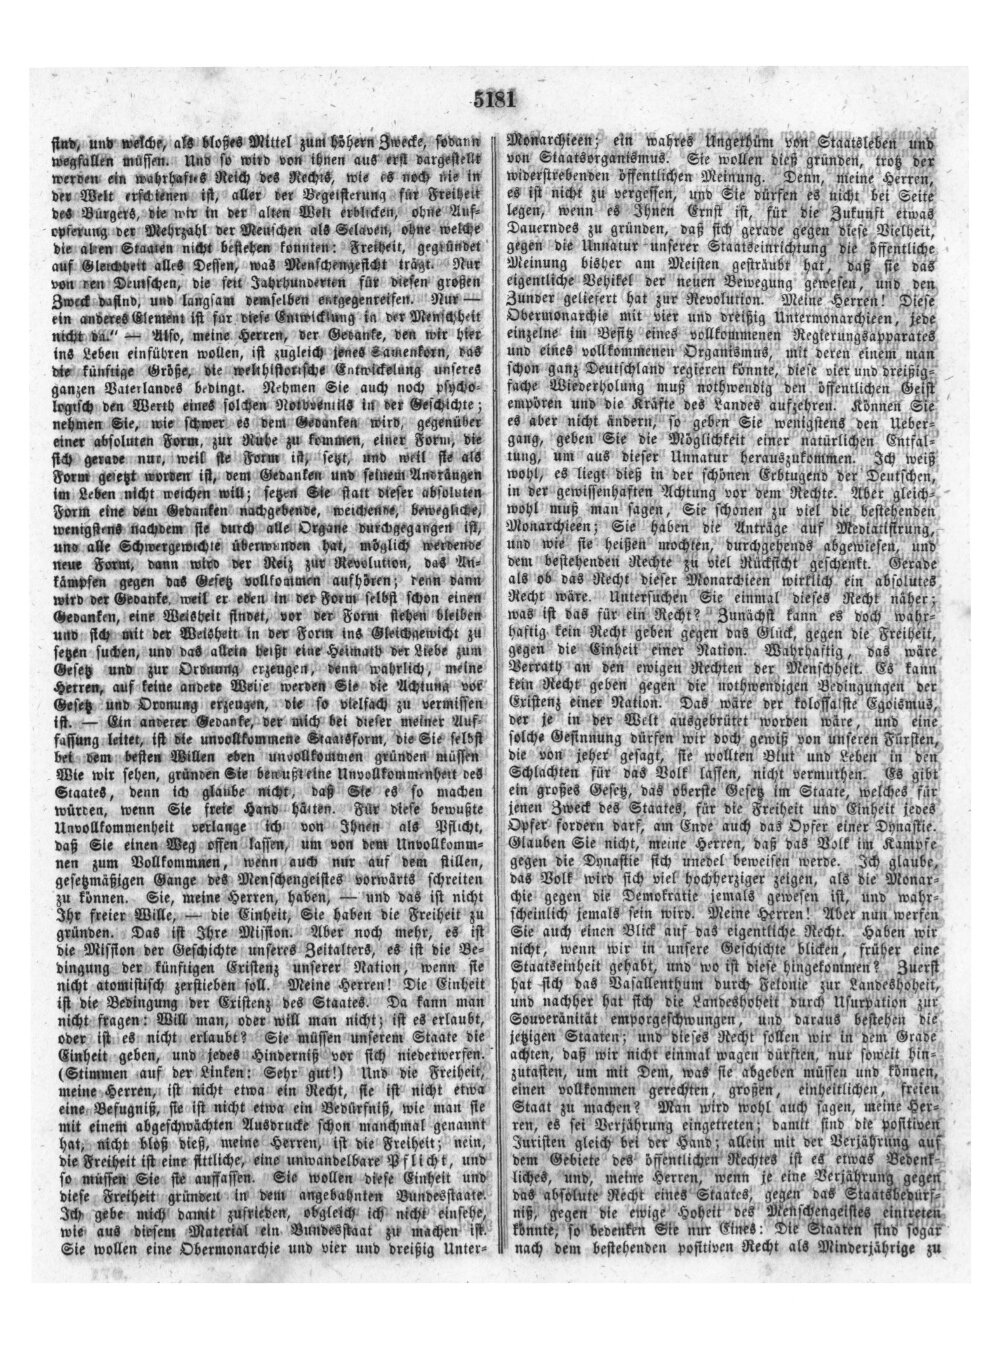 5181
sind, und welche, als bloßes Mittel zum höhern Zwecke, sodann
wegfallen müssen. Und so wird von ihnen aus erst dargestellt
werden ein wahrhaftes Reich des Rechts, wie es noch nie in
der Welt erschienen ist, aller der Begeisterung für Freiheit
des Bürgers, die wir in der alten Welt erblicken, ohne Auf-
opferung der Mehrzahl der Menschen als Sclaven, ohne welche
die alten Staaten nicht bestehen konnten: Freiheit, gegründet
auf Gleichheit alles Dessen, was Menschengesicht trägt. Nur
von den Deutschen, die seit Jahrhunderten für diesen großen
Zweck dasind, und langsam demselben entgegenreifen. Nur —
ein anderes Element ist für diese Entwicklung in der Menschheit
nicht da.“ — Also, meine Herren, der Gedanke, den wir hier
ins Leben einführen wollen, ist zugleich jenes Samenkorn, das
die künftige Größe, die welthistorische Entwickelung unseres
ganzen Vaterlandes bedingt. Nehmen Sie auch noch psycho-
logisch den Werth eines solchen Nothventils in der Geschichte;
nehmen Sie, wie schwer es dem Gedanken wird, gegenüber
einer absoluten Form, zur Ruhe zu kommen, einer Form, die
sich gerade nur, weil sie Form ist, setzt, und weil sie als
Form gesetzt worden ist, dem Gedanken und seinem Andrängen
im Leben nicht weichen will; setzen Sie statt dieser absoluten
Form eine dem Gedanken nachgebende, weichende, bewegliche,
wenigstens nachdem sie durch alle Organe durchgegangen ist,
und alle Schwergewichte überwunden hat, möglich werdende
neue Form, dann wird der Reiz zur Revolution, das An-
kämpfen gegen das Gesetz vollkommen aufhören; denn dann
wird der Gedanke, weil er eben in der Form selbst schon einen
Gedanken, eine Weisheit findet, vor der Form stehen bleiben
und sich mit der Weisheit in der Form ins Gleichgewicht zu
setzen suchen, und das allein heißt eine Heimath der Liebe zum
Gesetz und zur Ordnung erzeugen, denn wahrlich, meine
Herren, auf keine andere Weise werden Sie die Achtung vor
Gesetz und Ordnung erzeugen, die so vielfach zu vermissen
ist. — Ein anderer Gedanke, der mich bei dieser meiner Auf-
fassung leitet, ist die unvollkommene Staatsform, die Sie selbst
bei dem besten Willen eben unvollkommen gründen müssen
Wie wir sehen, gründen Sie bewußt eine Unvollkommenheit des
Staates, denn ich glaube nicht, daß Sie es so machen
würden, wenn Sie freie Hand hätten. Für diese bewußte
Unvollkommenheit verlange ich von Ihnen als Pflicht,
daß Sie einen Weg offen lassen, um von dem Unvollkomm-
nen zum Vollkommnen, wenn auch nur auf dem stillen,
gesetzmäßigen Gange des Menschengeistes vorwärts schreiten
zu können. Sie, meine Herren, haben, — und das ist nicht
Ihr freier Wille, — die Einheit, Sie haben die Freiheit zu
gründen. Das ist Ihre Mission. Aber noch mehr, es ist
die Mission der Geschichte unseres Zeitalters, es ist die Be-
dingung der künftigen Existenz unserer Nation, wenn sie
nicht atomistisch zerstieben soll. Meine Herren! Die Einheit
ist die Bedingung der Existenz des Staates. Da kann man
nicht fragen: Will man, oder will man nicht; ist es erlaubt,
oder ist es nicht erlaubt? Sie müssen unserem Staate die
Einheit geben, und jedes Hinderniß vor sich niederwerfen.
(Stimmen auf der Linken: Sehr gut!) Und die Freiheit,
meine Herren, ist nicht etwa ein Recht, sie ist nicht etwa
eine Befugniß, sie ist nicht etwa ein Bedürfniß, wie man sie
mit einem abgeschwächten Ausdrucke schon manchmal genannt
hat, nicht bloß dieß, meine Herren, ist die Freiheit; nein,
die Freiheit ist eine sittliche, eine unwandelbare Pflicht, und
so müssen Sie sie auffassen. Sie wollen diese Einheit und
diese Freiheit gründen in dem angebahnten Bundesstaate.
Ich gebe mich damit zufrieden, obgleich ich nicht einsehe,
wie aus diesem Material ein Bundesstaat zu machen ist.
Sie wollen eine Obermonarchie und vier und dreißig Unter-
Monarchieen; ein wahres Ungethüm von Staatsleben und
von Staatsorganismus. Sie wollen dieß gründen, trotz der
widerstrebenden öffentlichen Meinung. Denn, meine Herren,
es ist nicht zu vergessen, und Sie dürfen es nicht bei Seite
legen, wenn es Ihnen Ernst ist, für die Zukunft etwas
Dauerndes zu gründen, daß sich gerade gegen diese Vielheit,
gegen die Unnatur unserer Staatseinrichtung die öffentliche
Meinung bisher am Meisten gesträubt hat, daß sie das
eigentliche Vehikel der neuen Bewegung gewesen, und den
Zunder geliefert hat zur Revolution. Meine Herren! Diese
Obermonarchie mit vier und dreißig Untermonarchieen, jede
einzelne im Besitz eines vollkommenen Regierungsapparates
und eines vollkommenen Organismus, mit deren einem man
schon ganz Deutschland regieren könnte, diese vier und dreißig-
fache Wiederholung muß nothwendig den öffentlichen Geist
empören und die Kräfte des Landes aufzehren. Können Sie
es aber nicht ändern, so geben Sie wenigstens den Ueber-
gang, geben Sie die Möglichkeit einer natürlichen Entfal-
tung, um aus dieser Unnatur herauszukommen. Ich weiß
wohl, es liegt dieß in der schönen Erbtugend der Deutschen,
in der gewissenhaften Achtung vor dem Rechte. Aber gleich-
wohl muß man sagen, Sie schonen zu viel die bestehenden
Monarchieen; Sie haben die Anträge auf Mediatisirung,
und wie sie heißen mochten, durchgehends abgewiesen, und
dem bestehenden Rechte zu viel Rücksicht geschenkt. Gerade
als ob das Recht dieser Monarchieen wirklich ein absolutes
Recht wäre. Untersuchen Sie einmal dieses Recht näher;
was ist das für ein Recht? Zunächst kann es doch wahr-
haftig kein Recht geben gegen das Glück, gegen die Freiheit,
gegen die Einheit einer Nation. Wahrhaftig, das wäre
Verrath an den ewigen Rechten der Menschheit. Es kann
kein Recht geben gegen die nothwendigen Bedingungen der
Existenz einer Nation. Das wäre der kolossalste Egoismus,
der je in der Welt ausgebrütet worden wäre, und eine
solche Gesinnung dürfen wir doch gewiß von unseren Fürsten,
die von jeher gesagt, sie wollten Blut und Leben in den
Schlachten für das Volk lassen, nicht vermuthen. Es gibt
ein großes Gesetz, das oberste Gesetz im Staate, welches für
jenen Zweck des Staates, für die Freiheit und Einheit jedes
Opfer fordern darf, am Ende auch das Opfer einer Dynastie.
Glauben Sie nicht, meine Herren, daß das Volk im Kampfe
gegen die Dynastie sich unedel beweisen werde. Ich glaube,
das Volk wird sich viel hochherziger zeigen, als die Monar-
chie gegen die Demokratie jemals gewesen ist, und wahr-
scheinlich jemals sein wird. Meine Herren! Aber nun werfen
Sie auch einen Blick auf das eigentliche Recht. Haben wir
nicht, wenn wir in unsere Geschichte blicken, früher eine
Staatseinheit gehabt, und wo ist diese hingekommen? Zuerst
hat sich das Vasallenthum durch Felonie zur Landeshoheit,
und nachher hat sich die Landeshoheit durch Usurpation zur
Souveränität emporgeschwungen, und daraus bestehen die
jetzigen Staaten; und dieses Recht sollen wir in dem Grade
achten, daß wir nicht einmal wagen dürften, nur soweit hin-
zutasten, um mit Dem, was sie abgeben müssen und können,
einen vollkommen gerechten, großen, einheitlichen, freien
Staat zu machen? Man wird wohl auch sagen, meine Her-
ren, es sei Verjährung eingetreten; damit sind die positiven
Juristen gleich bei der Hand; allein mit der Verjährung auf
dem Gebiete des öffentlichen Rechtes ist es etwas Bedenk-
liches, und, meine Herren, wenn je eine Verjährung gegen
das absolute Recht eines Staates, gegen das Staatsbedürf-
niß, gegen die ewige Hoheit des Menschengeistes eintreten
könnte, so bedenken Sie nur Eines: Die Staaten sind sogar
nach dem bestehenden positiven Recht als Minderjährige zu